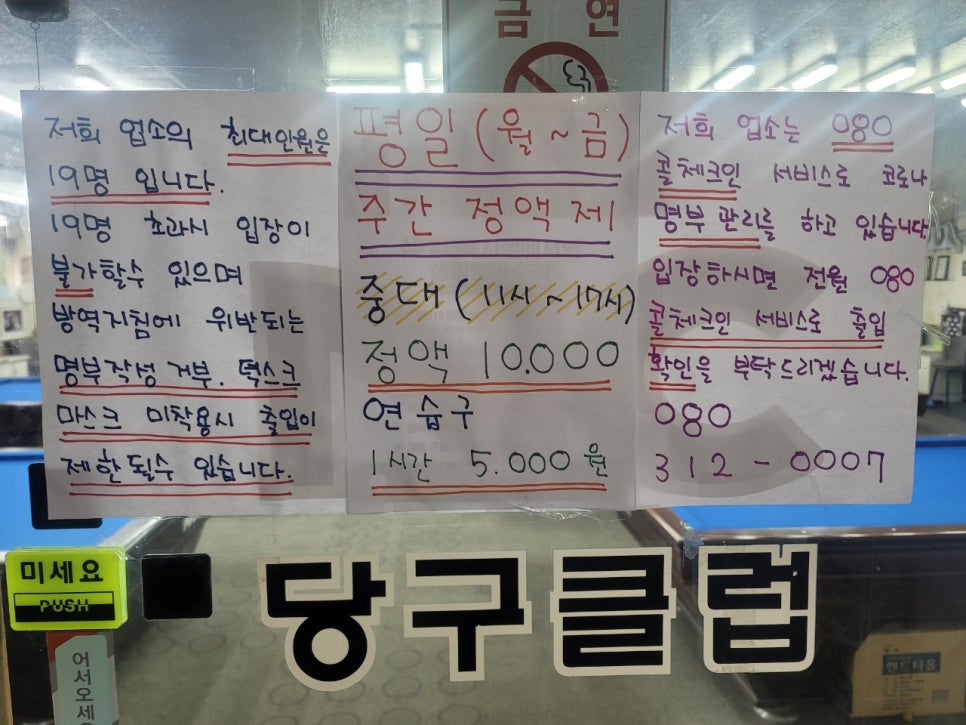 금연
저희 업소의 최대인원은
19명 입니다.
19명 초과시 입장이
불가할수 있으며
방역지침에 위반되는
명부작성 거부. 턱스크
마스크 미착용시 출입이
제한될수 있습니다.
평일 (월 ~ 금)
주간 정액제
중대 (11시 ~ 17시)
정액 10.000
연습구
1시간 5.000원
저희 업소는 080
콜체크인 서비스로 코로나
명부관리를 하고 있습니다
입장하시면 전원 080
콜체크인 서비스로 출입
확인을 부탁드리겠습니다.
080
312-0007
미세요
PUSH
어서오세
당구클럽
핸드타올